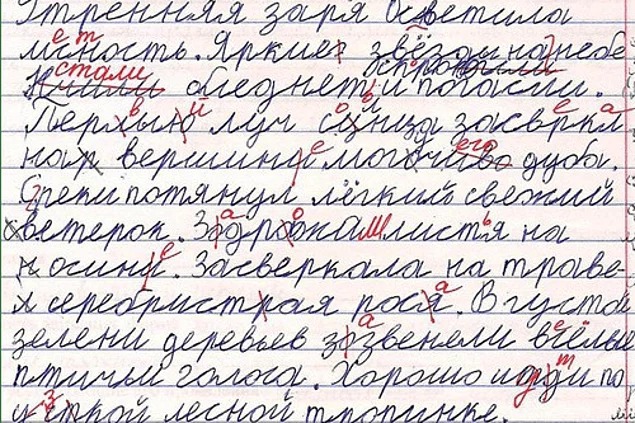 Утренняя заря осветила
мсность. Яркие звёзды на небе
стали бледнет и погасли.
Перхвый луч солнца засвркл
на вершини могочиво дуба.
С реки потянул лёгкий свежий
ветерок. Задрожал листья на
осини. Засверкала на траве
серебристая роса. В густой
зелени деревьев зозвенели вёлые
птичьи голоса. Хорошо идди по
уской лесной тропинке.